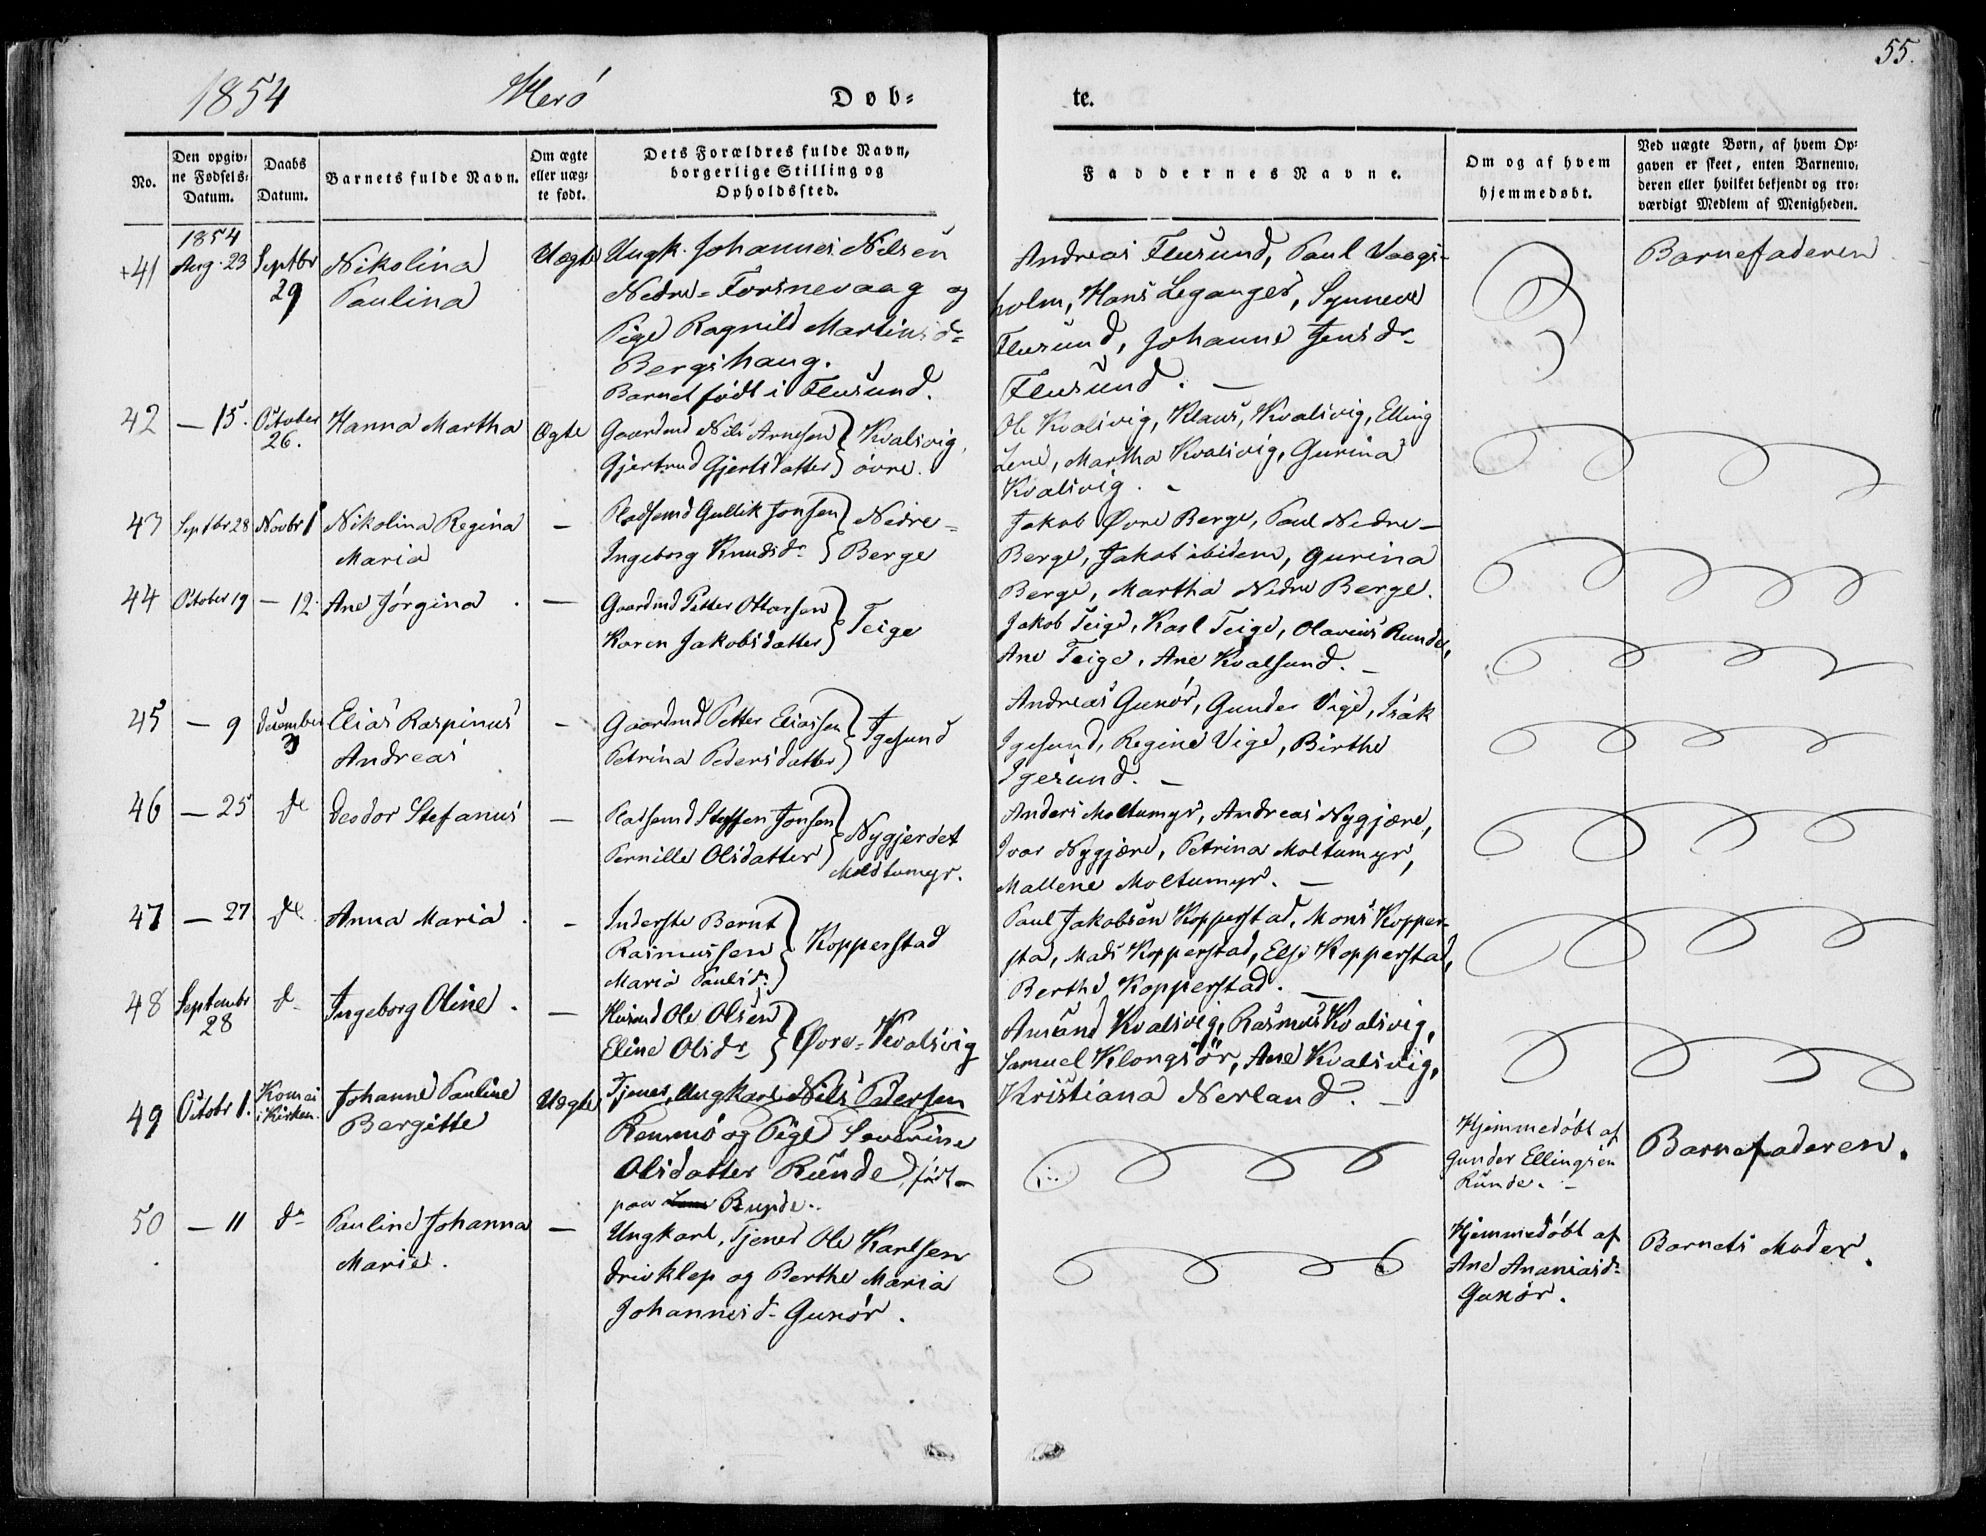 55.
1854 Herö Døb= te.
No.
Den opgiv=
ne Fødsels=
Datum.
Daabs
Datum.
Barnets fulde Navn.
Om ægte
eller uæg=
te født.
Dets Forældres fulde Navn,
borgerlige Stilling og
Opholdssted.
Faddernes Navne.
Om og af hvem
hjemmedøbt.
Ved uægte Børn, af hvem Op=
gaven er skeet, enten Barnemo=
deren eller hvilket bekjendt og tro=
værdigt Medlem af Menigheden.
+41
1854
Aug. 23
Septbr
29
Nikolina
Paulina
Uægte
Ungk. Johannes Nilsen
Nedre=Forsnevaag og
Pige Ragnild Martinsd=
Bergshaug.
Barnet født i Flusund.
Andreas Flusund, Paul Vaags-
holm, Hans Leganger, Synneve
Flusund, Johanne Jensdr
Flusund. —
Barnefaderen
42
— 15.
October
26.
Hanna Martha
Ægte
Gaardmd Nils Arnesen
Gjertrud Gjertsdatter
Kvalsvig,
øvre.
Ole Kvalsvig, Klaus, Kvalsvig, Elling
Lene, Martha Kvalsvig, Gurina
Kvalsvig. -
43
Septbr 28
Novbr 1
Nikolina Regina
Maria
—
Pladsemd Gullik Jonsen
Ingeborg Knudsdr
Nedre=
Berge
Jakob Øvre Berge, Paul Nedre-
Berge, Jakob ibidem, Gurina
Berge, Martha Nedre Berge.
44
October 19
— 12.
Ane Jørgina .
—
Gaardmd Petter Ottarsen
Karen Jakobsdatter
Teige
Jakob Teige, Karl Teige, Olavius Runde,
Ane Teige, Ane Kvalsund. —
45
— 9
December
3
Elias Raspinus
Andreas
-
Gaardmd Petter Eliassen
Petrina Pedersdatter
Igesund
Andreas Guxør, Gunder Vige, Isak
Igesund, Regine Vige, Birthe
Igesund. —
46
— 25
do
Deodor Stefanus
—
Pladsemd Steffen Jonsen
Pernille Olsdatter
Nygjerdet
Moldtumyr.
Anders Moltumyr, Andreas Nygjære,
Ivar Nygjære, Petrina Moltumyr,
Mallene Moltumyr. —
47
— 27
do
Anna Maria .
-
Inderste Bernt
Rasmussen
Maria Paulsdr
Kopperstad
Paul Jakobsen Kopperstad, Mons Kopper-
stad, Mads Kopperstad, Else Kopperstad,
Berthe Kopperstad. —
48
Septembr
28
do
Ingeborg Oline .
—
Huusmd Ole Olsen
Eline Olsdr
Øvre=Kvalsvig
Amund Kvalsvig, Rasmus Kvalsvig,
Samuel Klongsör, Ane Kvalsvig,
Kristiana Nerland. —
49
Octobr 1.
Komei
i Kirken.
Johanne Pauline
Bergitte
Uægte
Tjener, Ungkarl Nils Pedersen
Remmø og Pige Severine
Olsdatter Runde, født
paa Runde.
Hjemmedøbt af
Gunder Ellingsen
Runde. -
Barnefaderen.
50
— 11
do
Pauline Johanna
Marie.
—
Ungkarl, Tjener Ole Karlsen
Drivklep og Berthe Maria
Johannesd- Guxør.
Hjemmedøbt af
Ane Ananiasdr
Guxör.
Barnets Moder.